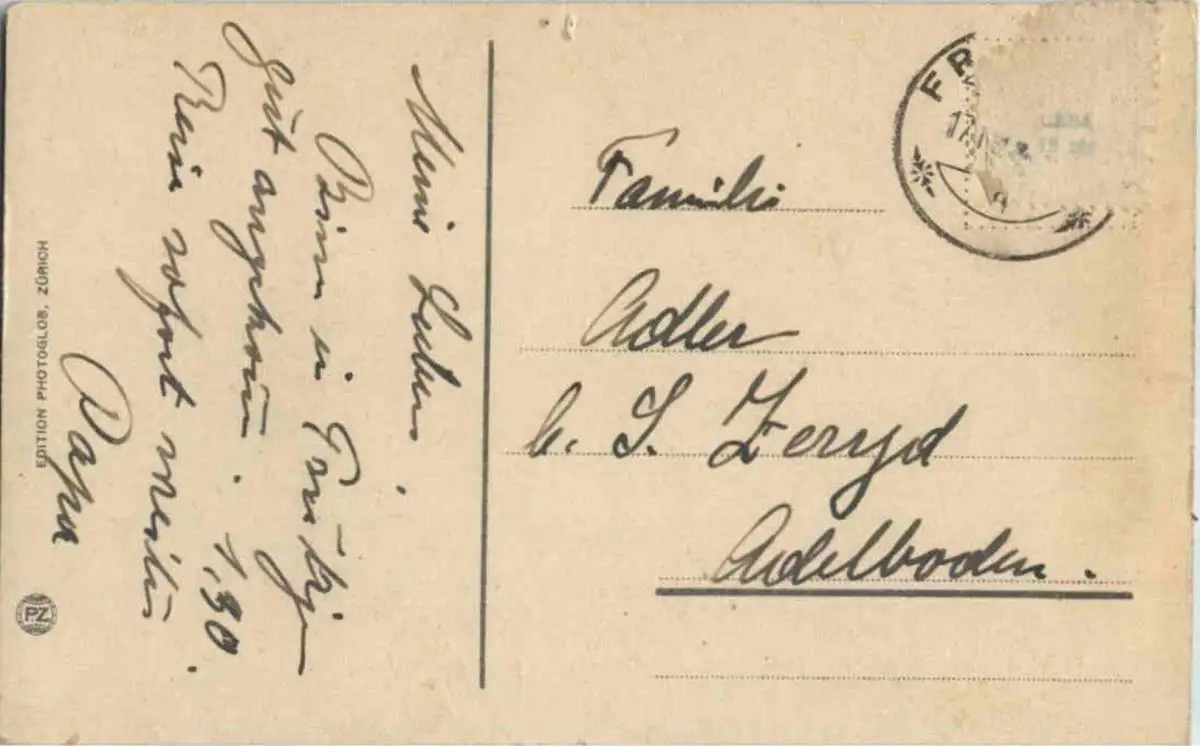 Meine Lieben.
Bin in Frutigen
gut angekom̄. 1,30.
Reise sofort weiter.
Papa
EDITION PHOTOGLOB, ZÜRICH
PZ
FR
17.
Familie
Adler
b. S. Zerryd
Adelboden.